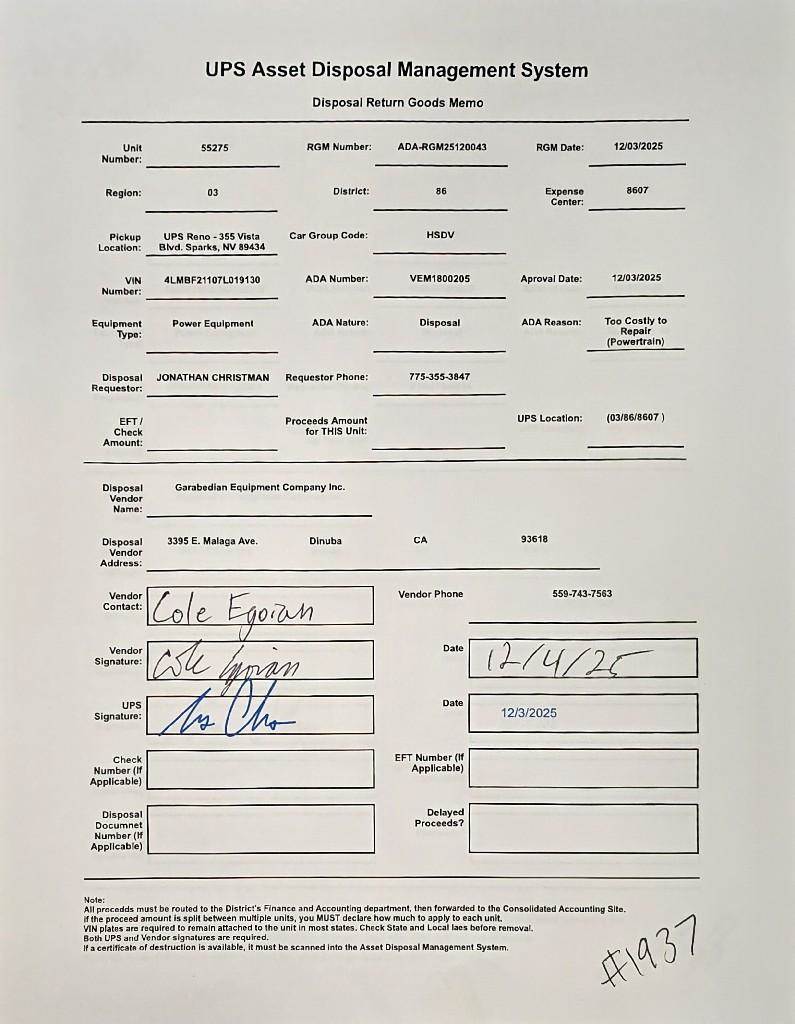 UPS Asset Disposal Management System
Disposal Return Goods Memo
Unit Number: 55275 RGM Number: ADA-RGM25120043 RGM Date: 12/03/2025
Region: 03 District: 86 Expense Center: 8607
Pickup Location: UPS Reno - 355 Vista Blvd. Sparks, NV 89434 Car Group Code: HSDV
VIN Number: 4LMBF21107L019130 ADA Number: VEM1800205 Aproval Date: 12/03/2025
Equipment Type: Power Equipment ADA Nature: Disposal ADA Reason: Too Costly to Repair (Powertrain)
Disposal Requestor: JONATHAN CHRISTMAN Requestor Phone: 775-355-3847
EFT / Check Amount: Proceeds Amount for THIS Unit: UPS Location: (03/86/8607 )
Disposal Vendor Name: Garabedian Equipment Company Inc.
Disposal Vendor Address: 3395 E. Malaga Ave. Dinuba CA 93618
Vendor Contact: Cole Egoian Vendor Phone 559-743-7563
Vendor Signature: Cole Egoian Date 12/4/25
UPS Signature: Date 12/3/2025
Check Number (If Applicable) EFT Number (If Applicable)
Disposal Documnet Number (If Applicable) Delayed Proceeds?
Note:
All procedds must be routed to the District's Finance and Accounting department, then forwarded to the Consolidated Accounting Site.
If the proceed amount is split between multiple units, you MUST declare how much to apply to each unit.
VIN plates are required to remain attached to the unit in most states. Check State and Local laes before removal.
Both UPS and Vendor signatures are required.
If a certificate of destruction is available, it must be scanned into the Asset Disposal Management System.
#1937